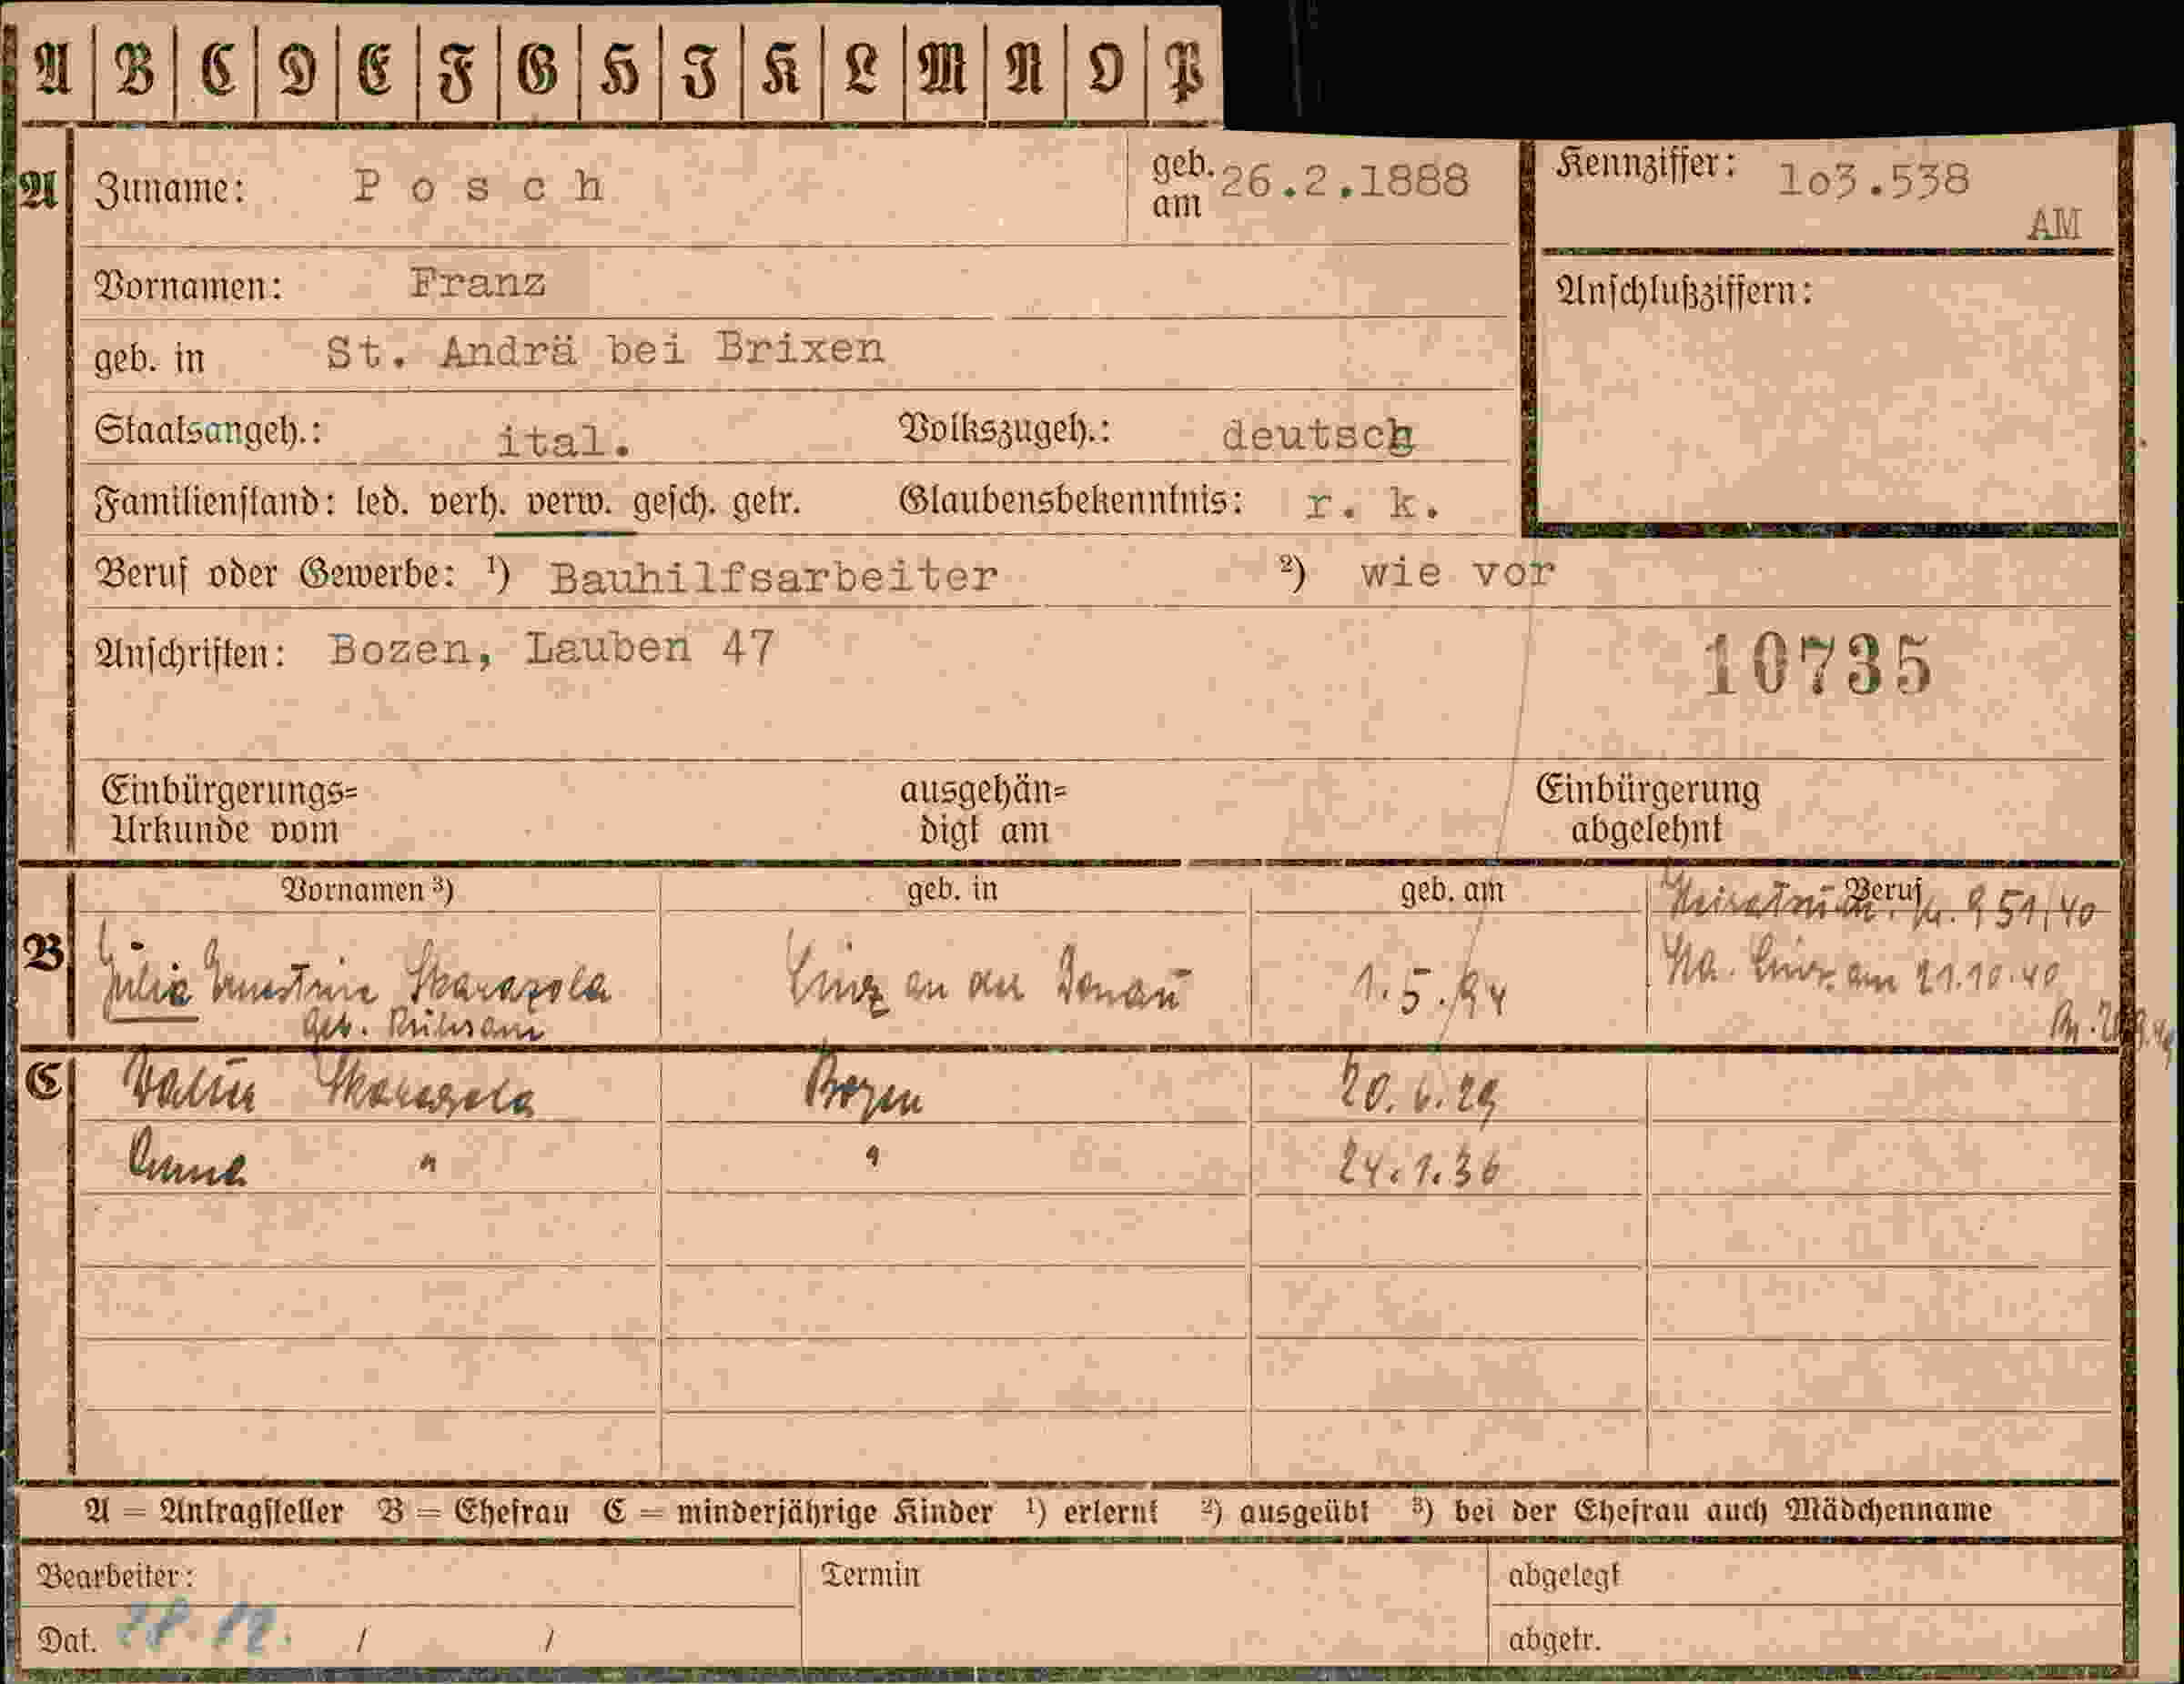 A B C D E F G H I K L M N O P
A Zuname: Posch geb. am 26.2.1888 Kennziffer: 1o3.538 AM
Vornamen: Franz Anschlußziffern:
geb. in St. Andrä bei Brixen
Staatsangeh.: ital. Volkszugeh.: deutsch
Familienstand: led. verh. verw. gesch. getr. Glaubensbekenntnis: r. k.
Beruf oder Gewerbe: ¹) Bauhilfsarbeiter ²) wie vor
Anschriften: Bozen, Lauben 47
10735
Einbürgerungs= ausgehän= Einbürgerung
Urkunde vom digt am abgelehnt
Vornamen ³) geb. in geb. am Beruf
951/40
B Julia Ernestine Skarazola Linz an der Donau 1.5.94 am 21.10.40
geb.
C Skarazola Bozen 20.6.29
Anna " " 24.1.36
A = Antragsteller B = Ehefrau C = minderjährige Kinder ¹) erlernt ²) ausgeübt ³) bei der Ehefrau auch Mädchenname
Bearbeiter: Termin abgelegt
Dat. / / abgetr.